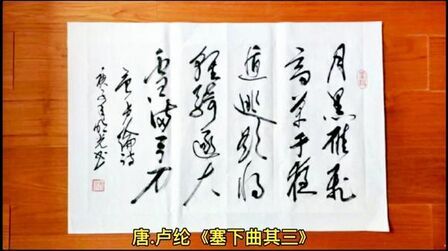 月黑雁飞
高单于夜
遁逃欲将
轻骑逐大
雪满弓刀
唐卢纶诗
唐.卢纶《塞下曲其三》